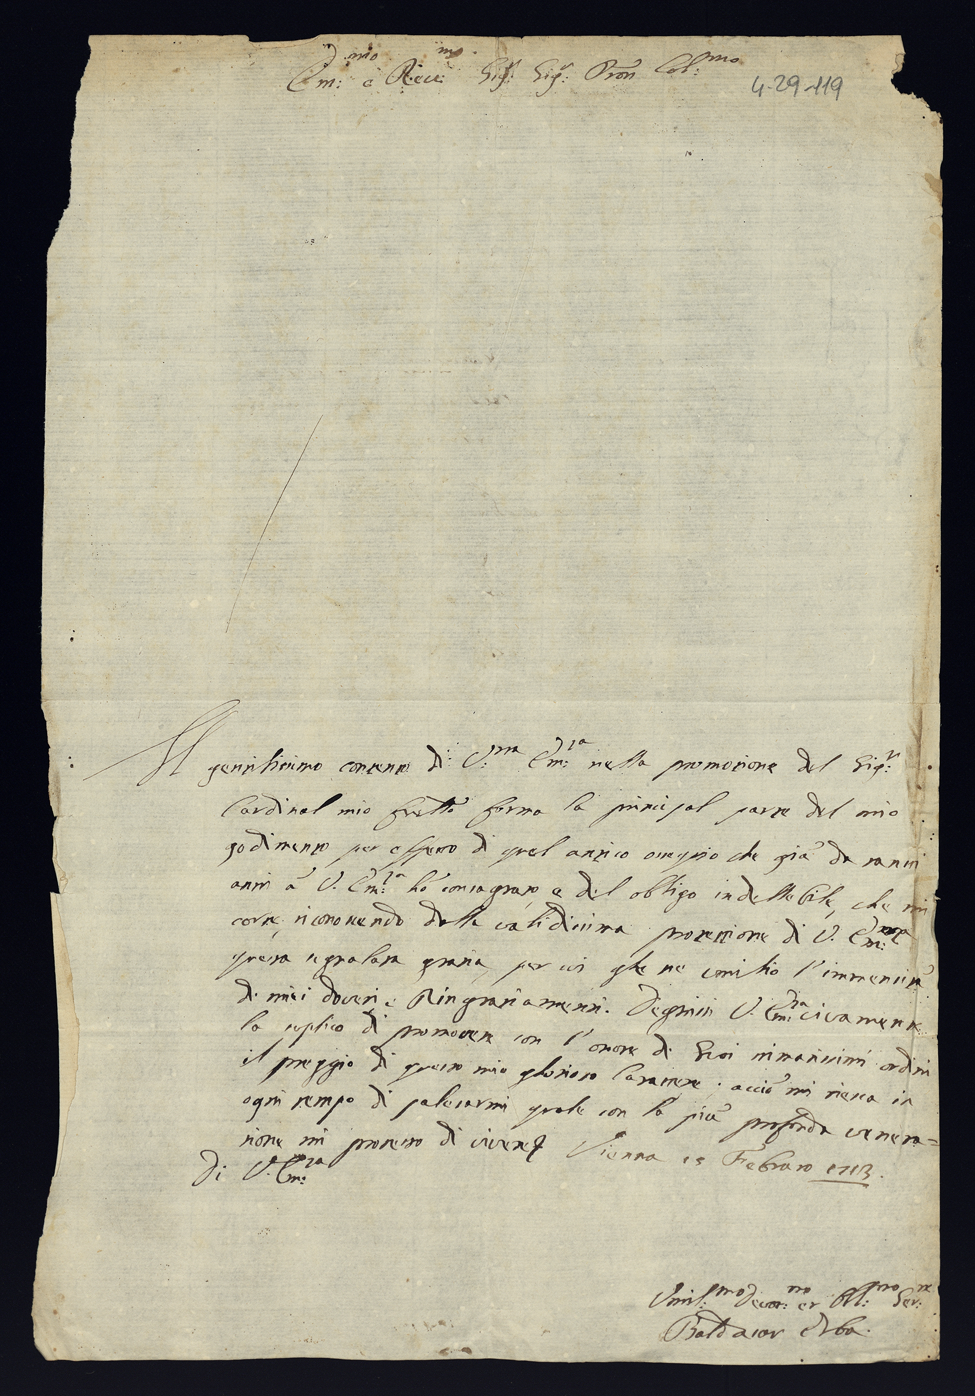 Em:mo è Reve:mo Sig.r Sig:r Pron Col:mo
4-29-119
Il gentilissimo contento di V:ra Em:za nella promozione del Sig:r
Cardinal mio frello forma la principal parte del mio
godimento per effetto di quel antico ossequio che già da tanti
anni à V. Em:za hò consagrato e del obligo indellebile, che mi
corre, riconoscendo dalla validissima protezione di V. Em:za
questa segnalata grazia, per cui gle ne umilio l'immensità
de miei doveri e Ringraziamenti. Degnisi V. Em:za vivamente
la suplico di promovere con l'onore de Suoi stimatissimi ordini
il preggio di questo mio glorioso Carattere; acciò mi riesca in
ogni tempo di palesarmi quale con la più profonda venera=
zione mi protesto di vivere Vienna 15 Febraro 1713.
Di V. Em:za
Umil:mo Devot:mo et Obl:mo Ser:re
Baldasar Erba